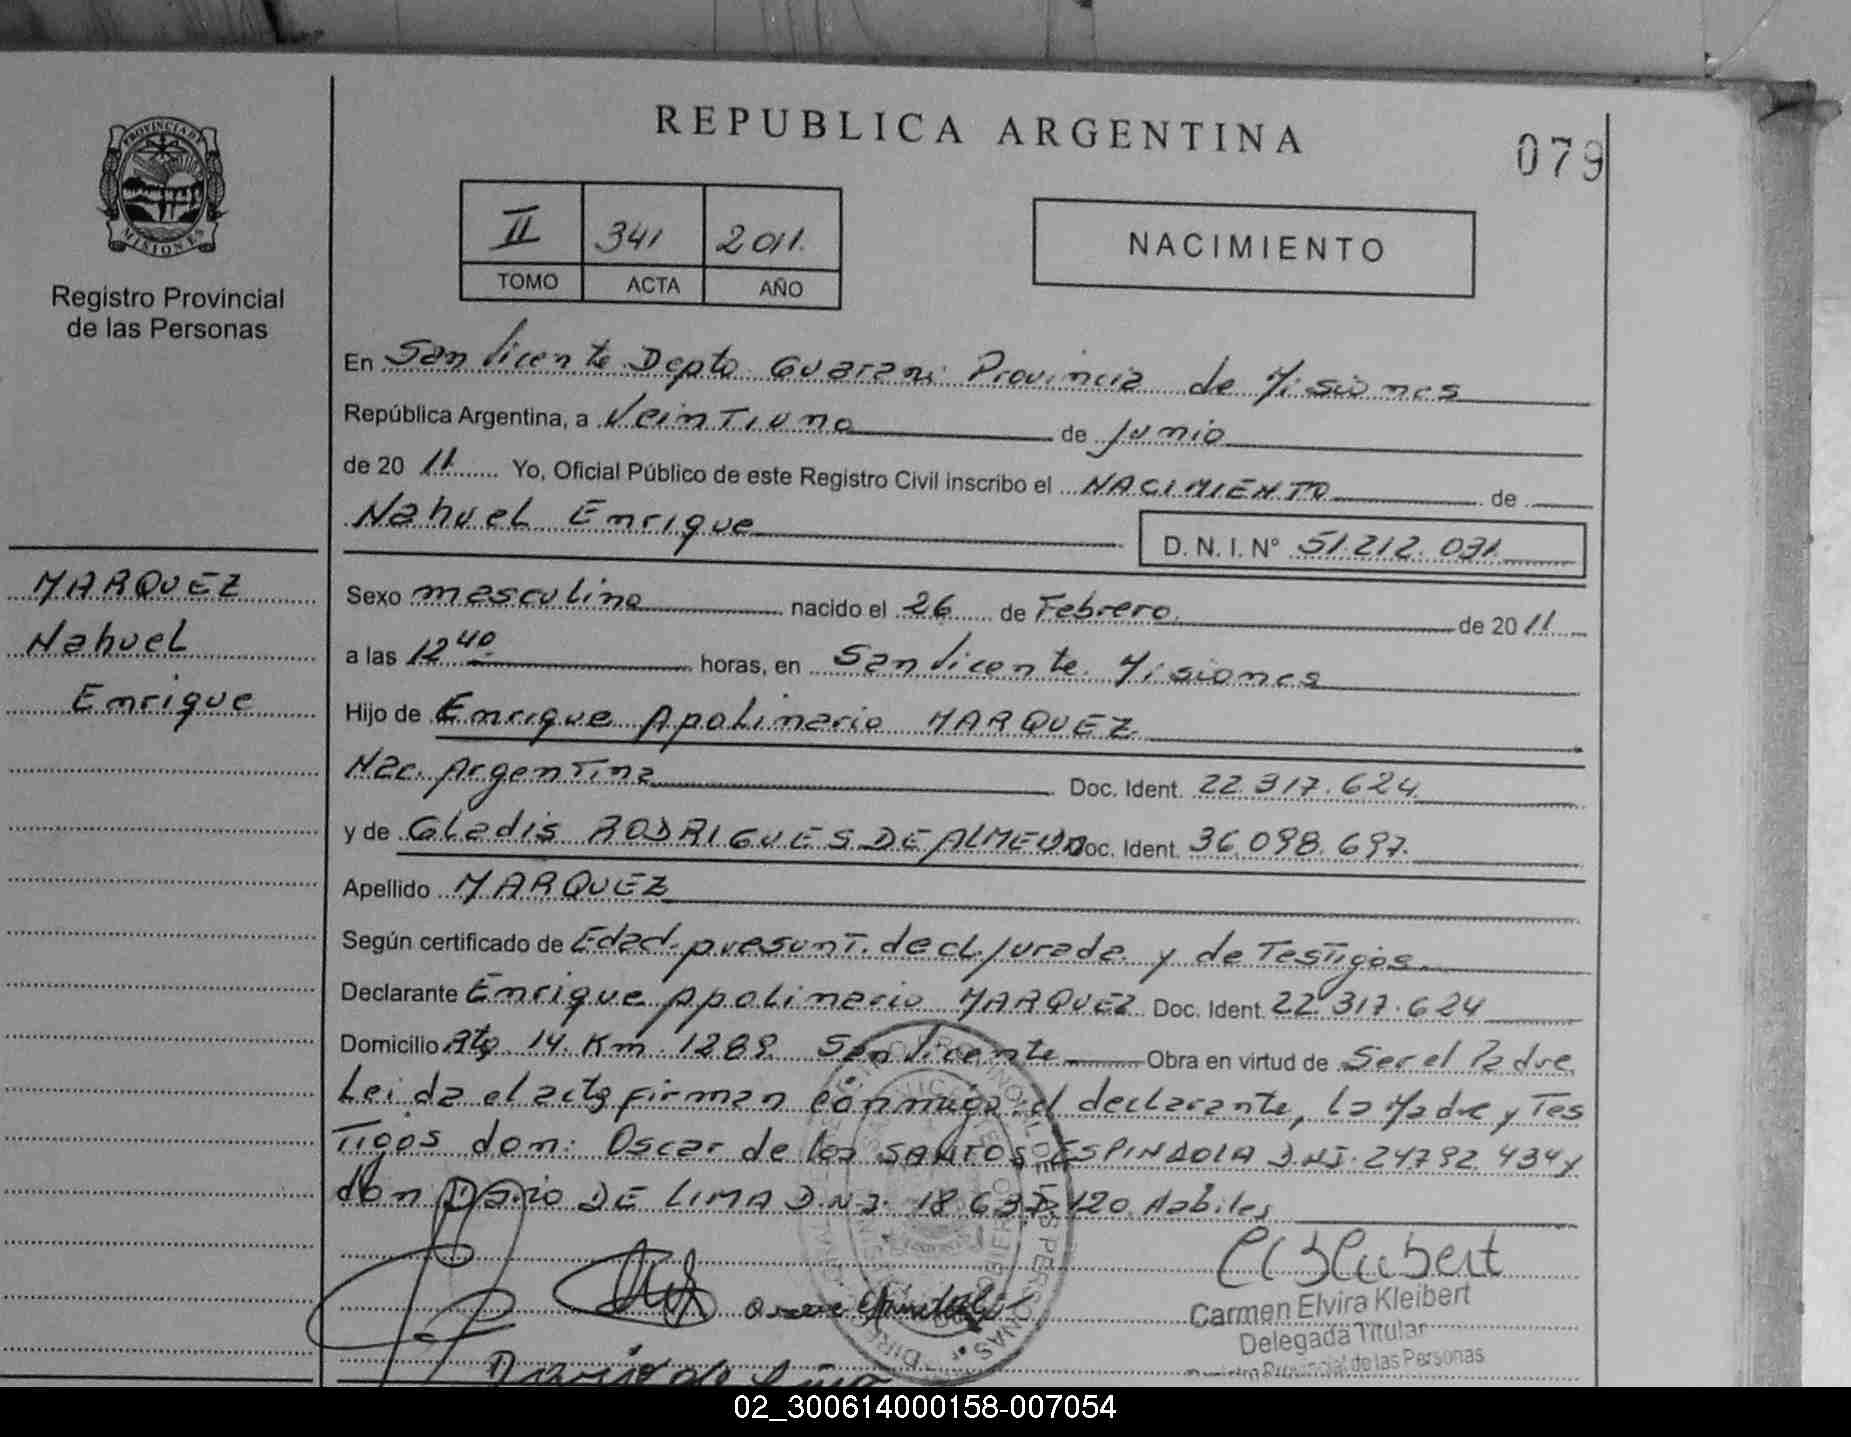 REPUBLICA ARGENTINA
079
PROVINCIA DE
MISIONES
Registro Provincial
de las Personas
II 341 2011.
TOMO ACTA AÑO
NACIMIENTO
En San Vicente Depto Guarani Provincia de Misiones
República Argentina, a Veintiuno de Junio
de 20 11 Yo, Oficial Público de este Registro Civil inscribo el NACIMIENTO de
Nahuel Enrique
D. N. I. N° 51.212.031
MARQUEZ
Nahuel
Enrique
Sexo masculino nacido el 26 de Febrero de 20 11
a las 12 40 horas, en San Vicente. Misiones
Hijo de Enrique Apolinario MARQUEZ
Nac. Argentina Doc. Ident. 22.317.624
y de Gladis RODRIGUES DE ALMEIDA Doc. Ident. 36.098.697.
Apellido MARQUEZ
Según certificado de Edad. presunt. decl. jurada y de Testigos
Declarante Enrique Apolinario MARQUEZ Doc. Ident. 22.317.624
Domicilio Rta 14. Km. 1289 San Vicente Obra en virtud de Ser el Padre
Leida el acta firman conmigo el declarante, la Madre y Tes
tigos don: Oscar de los SANTOS ESPINDOLA D.N.I. 24792.434 y
don Dario DE LIMA D.N.I. 18.637.120 Habiles
Carmen Elvira Kleibert
Delegada Titular
Registro Provincial de las Personas
02_300614000158-007054